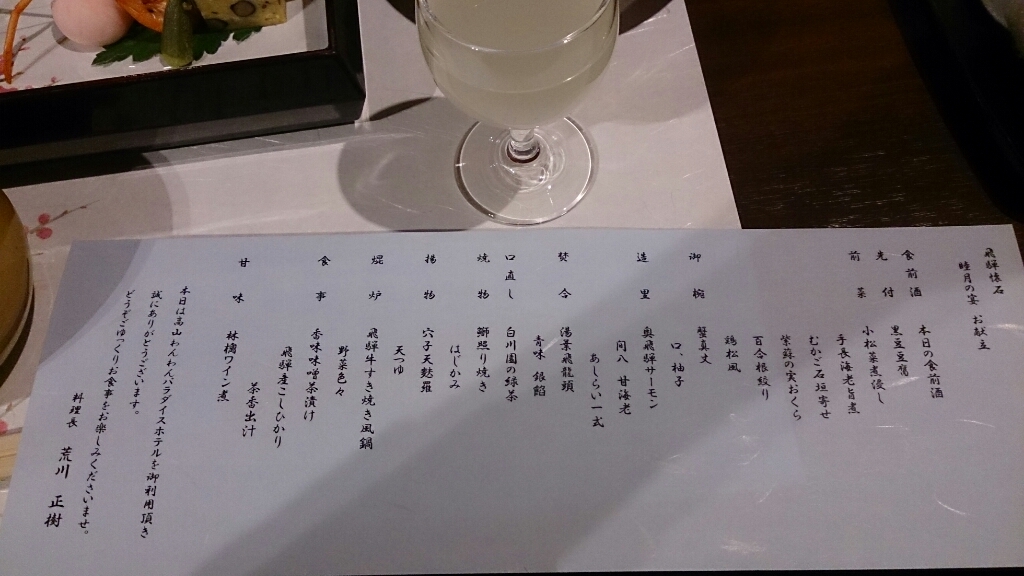 飛騨懐石
睦月の宴 お献立
食前酒 本日の食前酒
先付 黒豆豆腐
小松菜煮浸し
前菜 手長海老旨煮
むかご石垣寄せ
紫蘇の実おくら
百合根絞り
鶏松風
御椀 蟹真丈
口、柚子
造里 奥飛騨サーモン
間八 甘海老
あしらい一式
焚合 湯葉飛龍頭
青味 銀餡
口直し 白川園の緑茶
焼物 鰤照り焼き
はじかみ
揚物 穴子天麩羅
天つゆ
焜炉 飛騨牛すき焼き風鍋
野菜色々
食事 香味味噌茶漬け
飛騨産こしひかり
茶香出汁
甘味 林檎ワイン煮
本日は高山わんわんパラダイスホテルを御利用頂き
誠にありがとうございます。
どうぞごゆっくりお食事をお楽しみくださいませ。
料理長 荒川 正樹